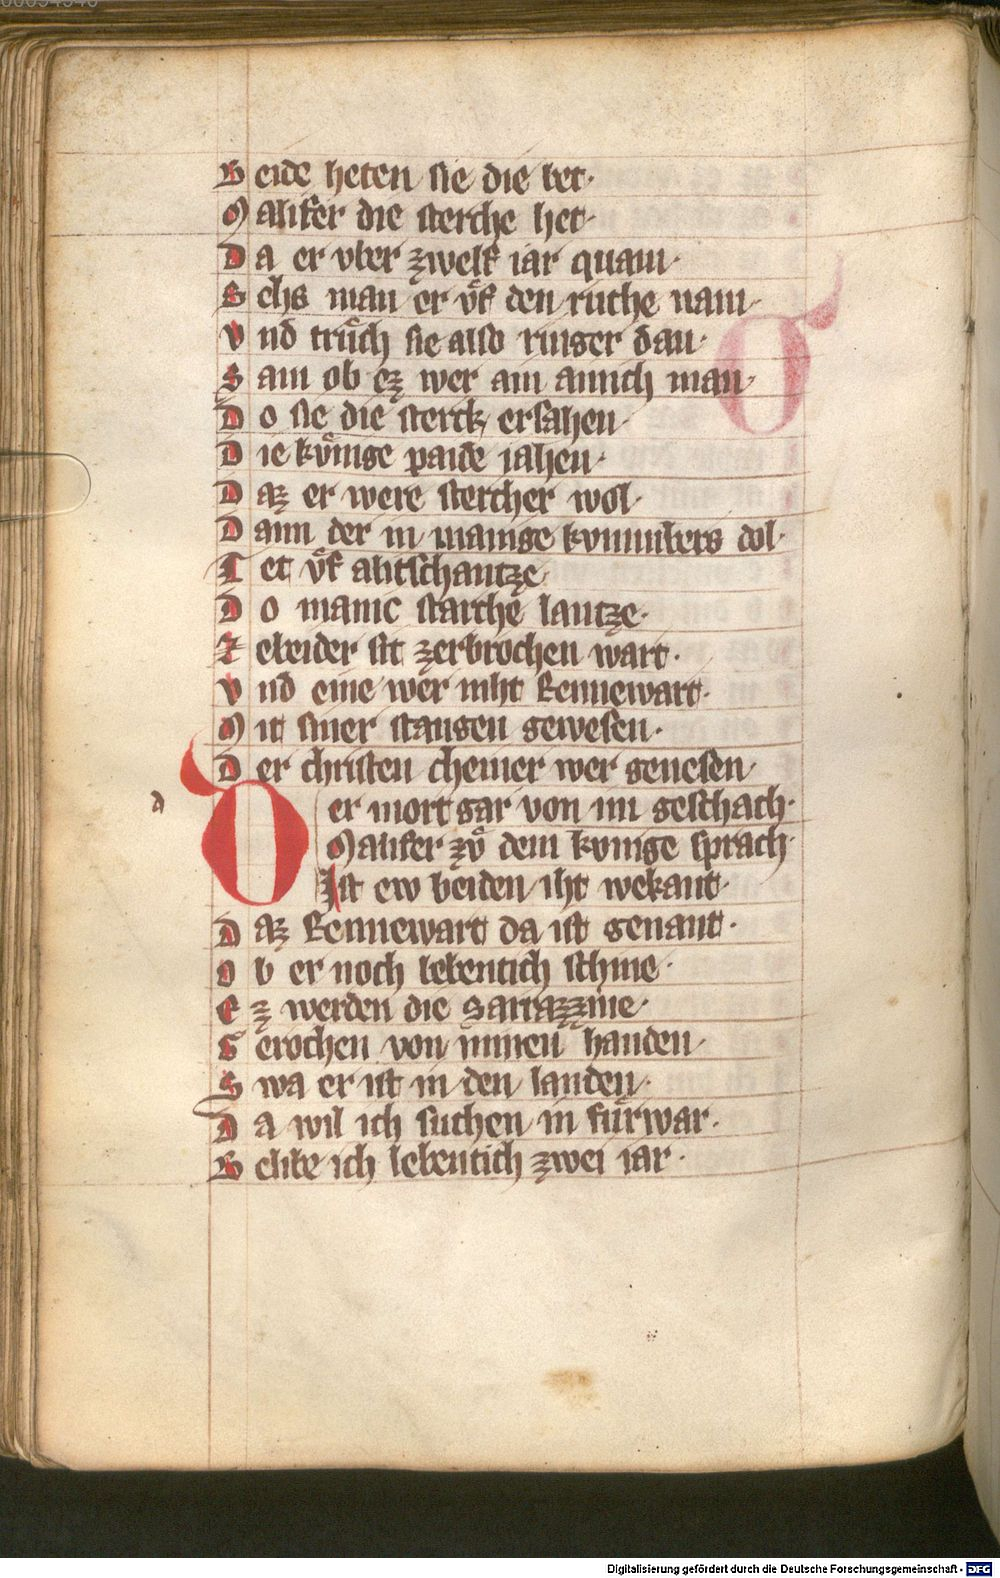 B eide heten sie die bet·
M alifer die sterche het·
D a er vber zwelf iar quam·
S ehs man er vͦf den ruche nam·
V nd truͦch sie also ringer dan·
S am ob ez wer ain ainich man·
D o sie die sterck ersahen·
D ie kvͤnige paide iahen·
D az er were stercher wol·
D ann der in mainge kvmmbers dol·
T et vͦf alitschantze·
D o manic starche lantze·
Z ebeider sit zerbrochen wart·
V nd eine wer niht Rennewart·
M it siner stangen gewesen·
D er christen cheiner wer genesen
d
D er mort gar von im geschach·
Malifer zvͦ dem kvnige sprach·
Ist ew beiden iht wekant·
D az Rennewart da ist genant·
O b er noch lebentich schine·
E z werden die Sarrazzine·
G erochen von minen handen
S wa er ist in den landen·
D a wil ich suchen in fuͤrwar·
B elibe ich lebentich zwei iar·
Digitalisierung gefördert durch die Deutsche Forschungsgemeinschaft - DFG